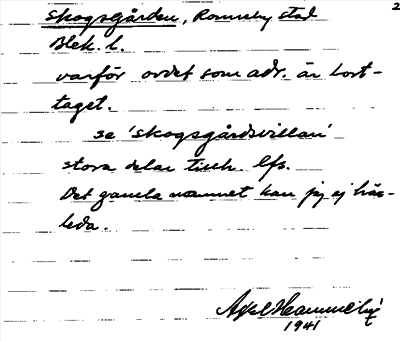 2
Skogsgården, Ronneby stad
Blek. l.
varför ordet som adr. är bort-
taget.
se 'skogsgårdsvillan'
stora delar tillh. lfs.
Det gamla namnet kan jag ej här-
leda.
1941